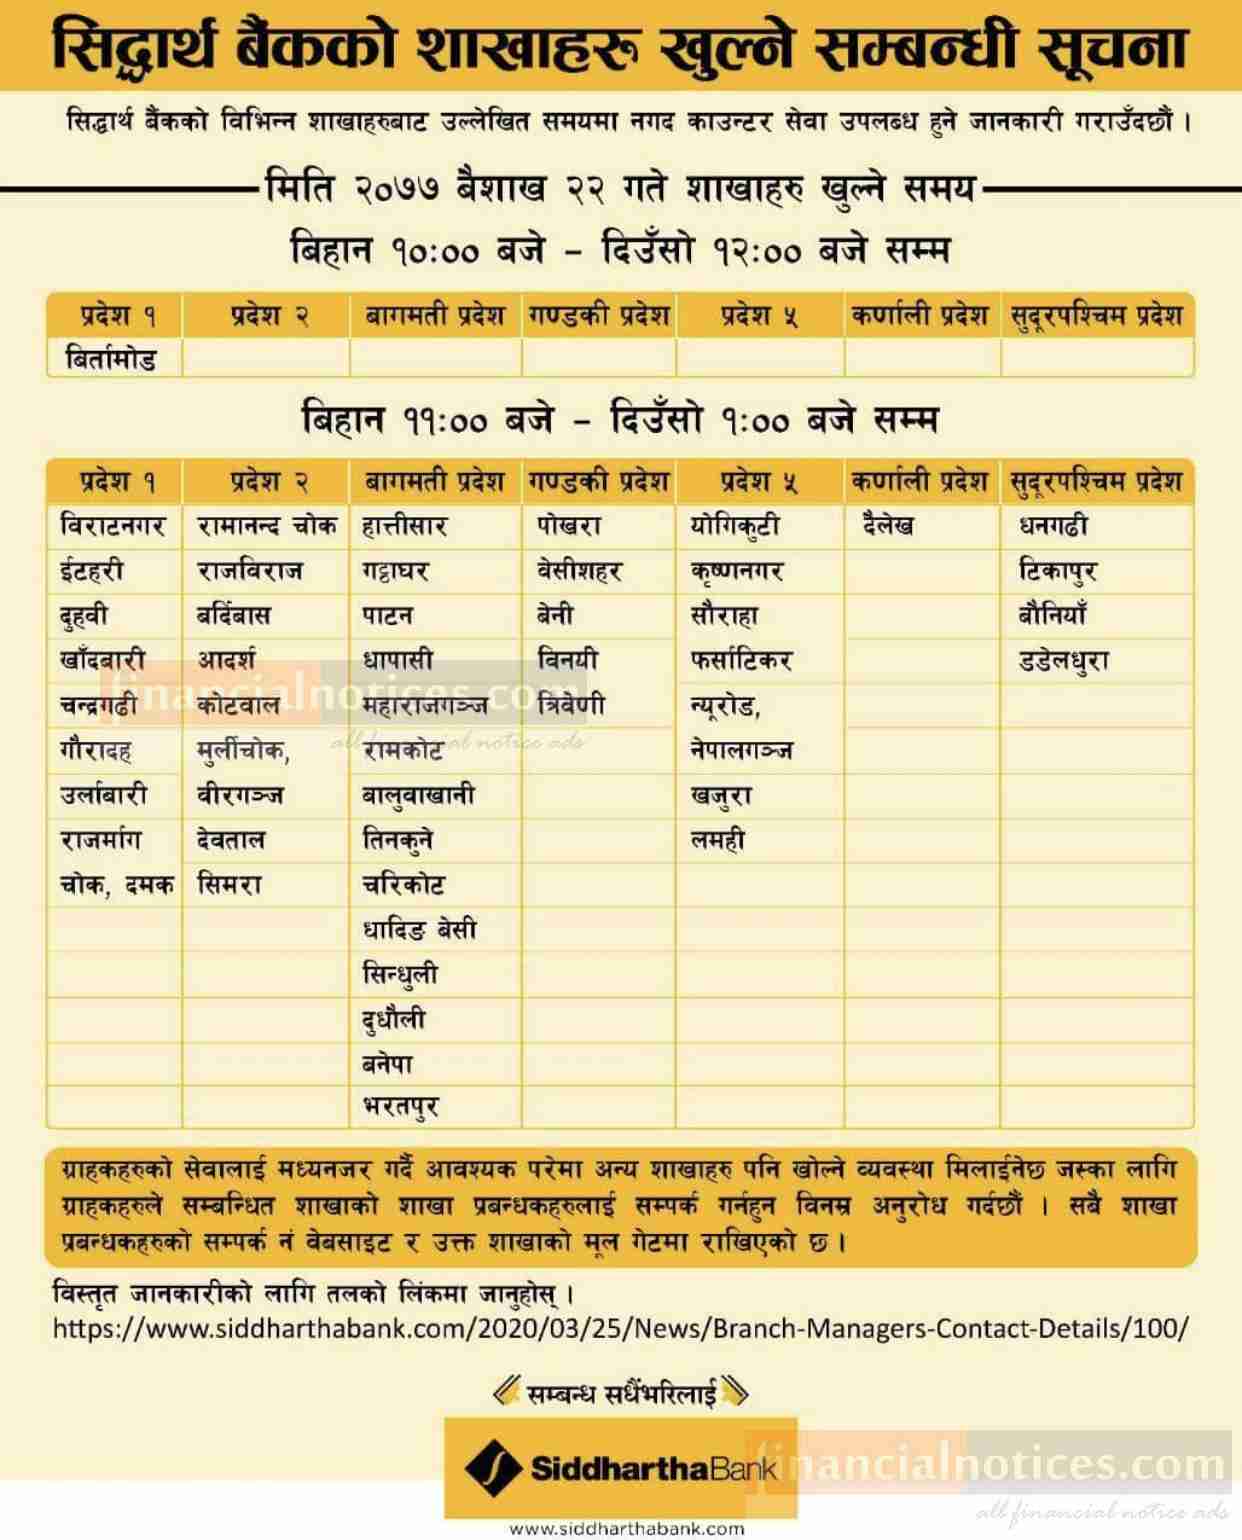 सिद्धार्थ बैंकको शाखाहरु खुल्ने सम्बन्धी सूचना
सिद्धार्थ बैंकको विभिन्न शाखाहरुबाट उल्लेखित समयमा नगद काउन्टर सेवा उपलब्ध हुने जानकारी गराउँदछौं ।
मिति २०७७ बैशाख २२ गते शाखाहरु खुल्ने समय
बिहान १०:०० बजे – दिउँसो १२:०० बजे सम्म
प्रदेश १ प्रदेश २ बागमती प्रदेश गण्डकी प्रदेश प्रदेश ५ कर्णाली प्रदेश सुदूरपश्चिम प्रदेश
बिर्तामोड
बिहान ११:०० बजे – दिउँसो १:०० बजे सम्म
प्रदेश १ प्रदेश २ बागमती प्रदेश गण्डकी प्रदेश प्रदेश ५ कर्णाली प्रदेश सुदूरपश्चिम प्रदेश
विराटनगर रामानन्द चोक हात्तीसार पोखरा योगिकुटी दैलेख धनगढी
ईटहरी राजविराज गट्ठाघर वेसीशहर कृष्णनगर टिकापुर
दुहवी बर्दिबास पाटन बेनी सौराहा बौनियाँ
खाँदबारी आदर्श धापासी विनयी फर्साटिकर डडेलधुरा
financialnotices.com
चन्द्रगढी कोटवाल महाराजगञ्ज त्रिवेणी न्यूरोड,
all financial notice ads
गौरादह मुर्लीचोक, रामकोट नेपालगञ्ज
उर्लाबारी वीरगञ्ज बालुवाखानी खजुरा
राजर्माग देवताल तिनकुने लमही
चोक, दमक सिमरा चरिकोट
धादिङ बेसी
सिन्धुली
दुधौली
बनेपा
भरतपुर
ग्राहकहरुको सेवालाई मध्यनजर गर्दै आवश्यक परेमा अन्य शाखाहरु पनि खोल्ने व्यवस्था मिलाईनेछ जस्का लागि
ग्राहकहरुले सम्बन्धित शाखाको शाखा प्रबन्धकहरुलाई सम्पर्क गर्नहुन विनम्र अनुरोध गर्दछौं । सबै शाखा
प्रबन्धकहरुको सम्पर्क नं वेबसाइट र उक्त शाखाको मूल गेटमा राखिएको छ ।
विस्तृत जानकारीको लागि तलको लिंकमा जानुहोस् ।
https://www.siddharthabank.com/2020/03/25/News/Branch-Managers-Contact-Details/100/
सम्बन्ध सधैंभरिलाई
SiddharthaBank
financialnotices.com
all financial notice ads
www.siddharthabank.com